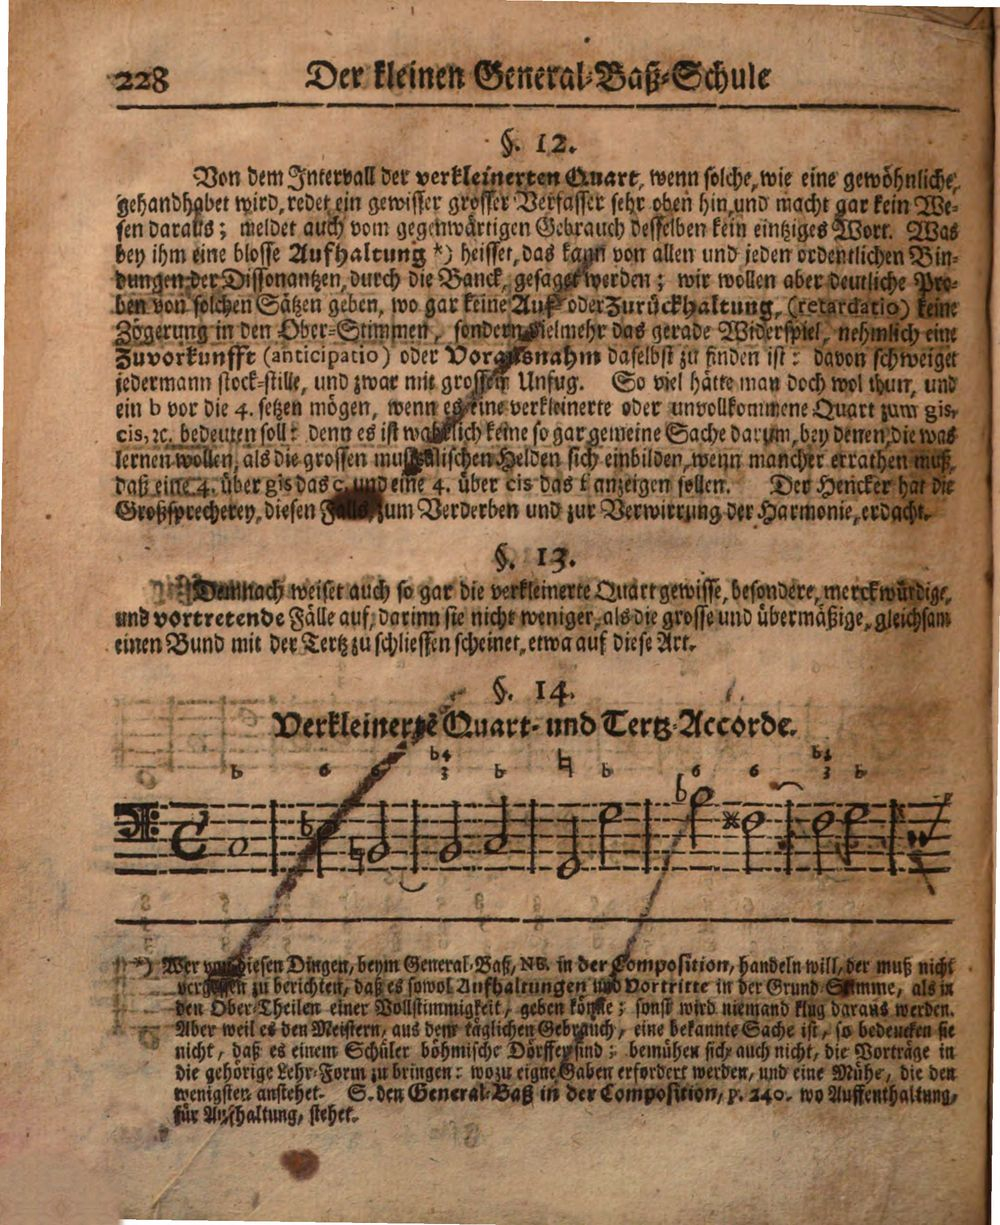 228 Der kleinen General-Baß-Schule
§. 12.
Von dem Intervall der verkleinerten Quart, wenn solche, wie eine gewöhnliche,
gehandhabet wird, redet ein gewisser grosser Verfasser sehr oben hin, und macht gar kein We-
sen daraus; meldet auch vom gegenwärtigen Gebrauch desselben kein eintziges Wort. Was
bey ihm eine blosse Aufhaltung *) heisset, das kann von allen und jeden ordentlichen Bin-
dungen der Dissonantzen, durch die Banck, gesaget werden; wir wollen aber deutliche Pro-
ben von solchen Sätzen geben, wo gar keine Auf- oder Zurückhaltung, (retardatio) keine
Zögerung in den Ober-Stimmen, sondern vielmehr das gerade Widerspiel, nehmlich eine
Zuvorkunfft (anticipatio) oder Vorausnahm daselbst zu finden ist: davon schweiget
jedermann stock-stille, und zwar mit grossem Unfug. So viel hätte man doch wol thun, und
ein b vor die 4. setzen mögen, wenn es eine verkleinerte oder unvollkommene Quart zum gis,
cis, ꝛc. bedeuten soll: denn es ist warlich keine so gar gemeine Sache darum, bey denen, die was
lernen wollen, als die grossen musicalischen Helden sich einbilden, wenn mancher errathen muß,
daß eine 4. über gis das c, und eine 4. über cis das f anzeigen sollen. Der Hencker hat die
Großsprecherey, diesen Falls, zum Verderben und zur Verwirrung der Harmonie, erdacht.
§. 13.
Demnach weiset auch so gar die verkleinerte Quart gewisse, besondere, merckwürdige,
und vortretende Fälle auf, darinn sie nicht weniger, als die grosse und übermäßige, gleichsam
einen Bund mit der Tertz zu schliessen scheinet, etwa auf diese Art.
§. 14.
Verkleinerte Quart- und Tertz-Accorde.
b 6 6 b4 3 b ♮ b 6 6 b4 3 b
*) Wer von diesen Dingen, beym General-Baß, NB. in der Composition, handeln will, der muß nicht
vergessen zu berichten, daß es sowol Aufhaltungen und Vortritte in der Grund-Stimme, als in
den Ober-Theilen einer Vollstimmigkeit, geben könne; sonst wird niemand klug daraus werden.
Aber weil es den Meistern, aus dem täglichen Gebrauch, eine bekannte Sache ist, so bedencken sie
nicht, daß es einem Schüler böhmische Dörffer sind; bemühen sich auch nicht, die Vorträge in
die gehörige Lehr-Form zu bringen: wozu eigne Gaben erfordert werden, und eine Mühe, die den
wenigsten anstehet. S. den General-Baß in der Composition, p. 240. wo Auffenthaltung,
für Aufhaltung, stehet.